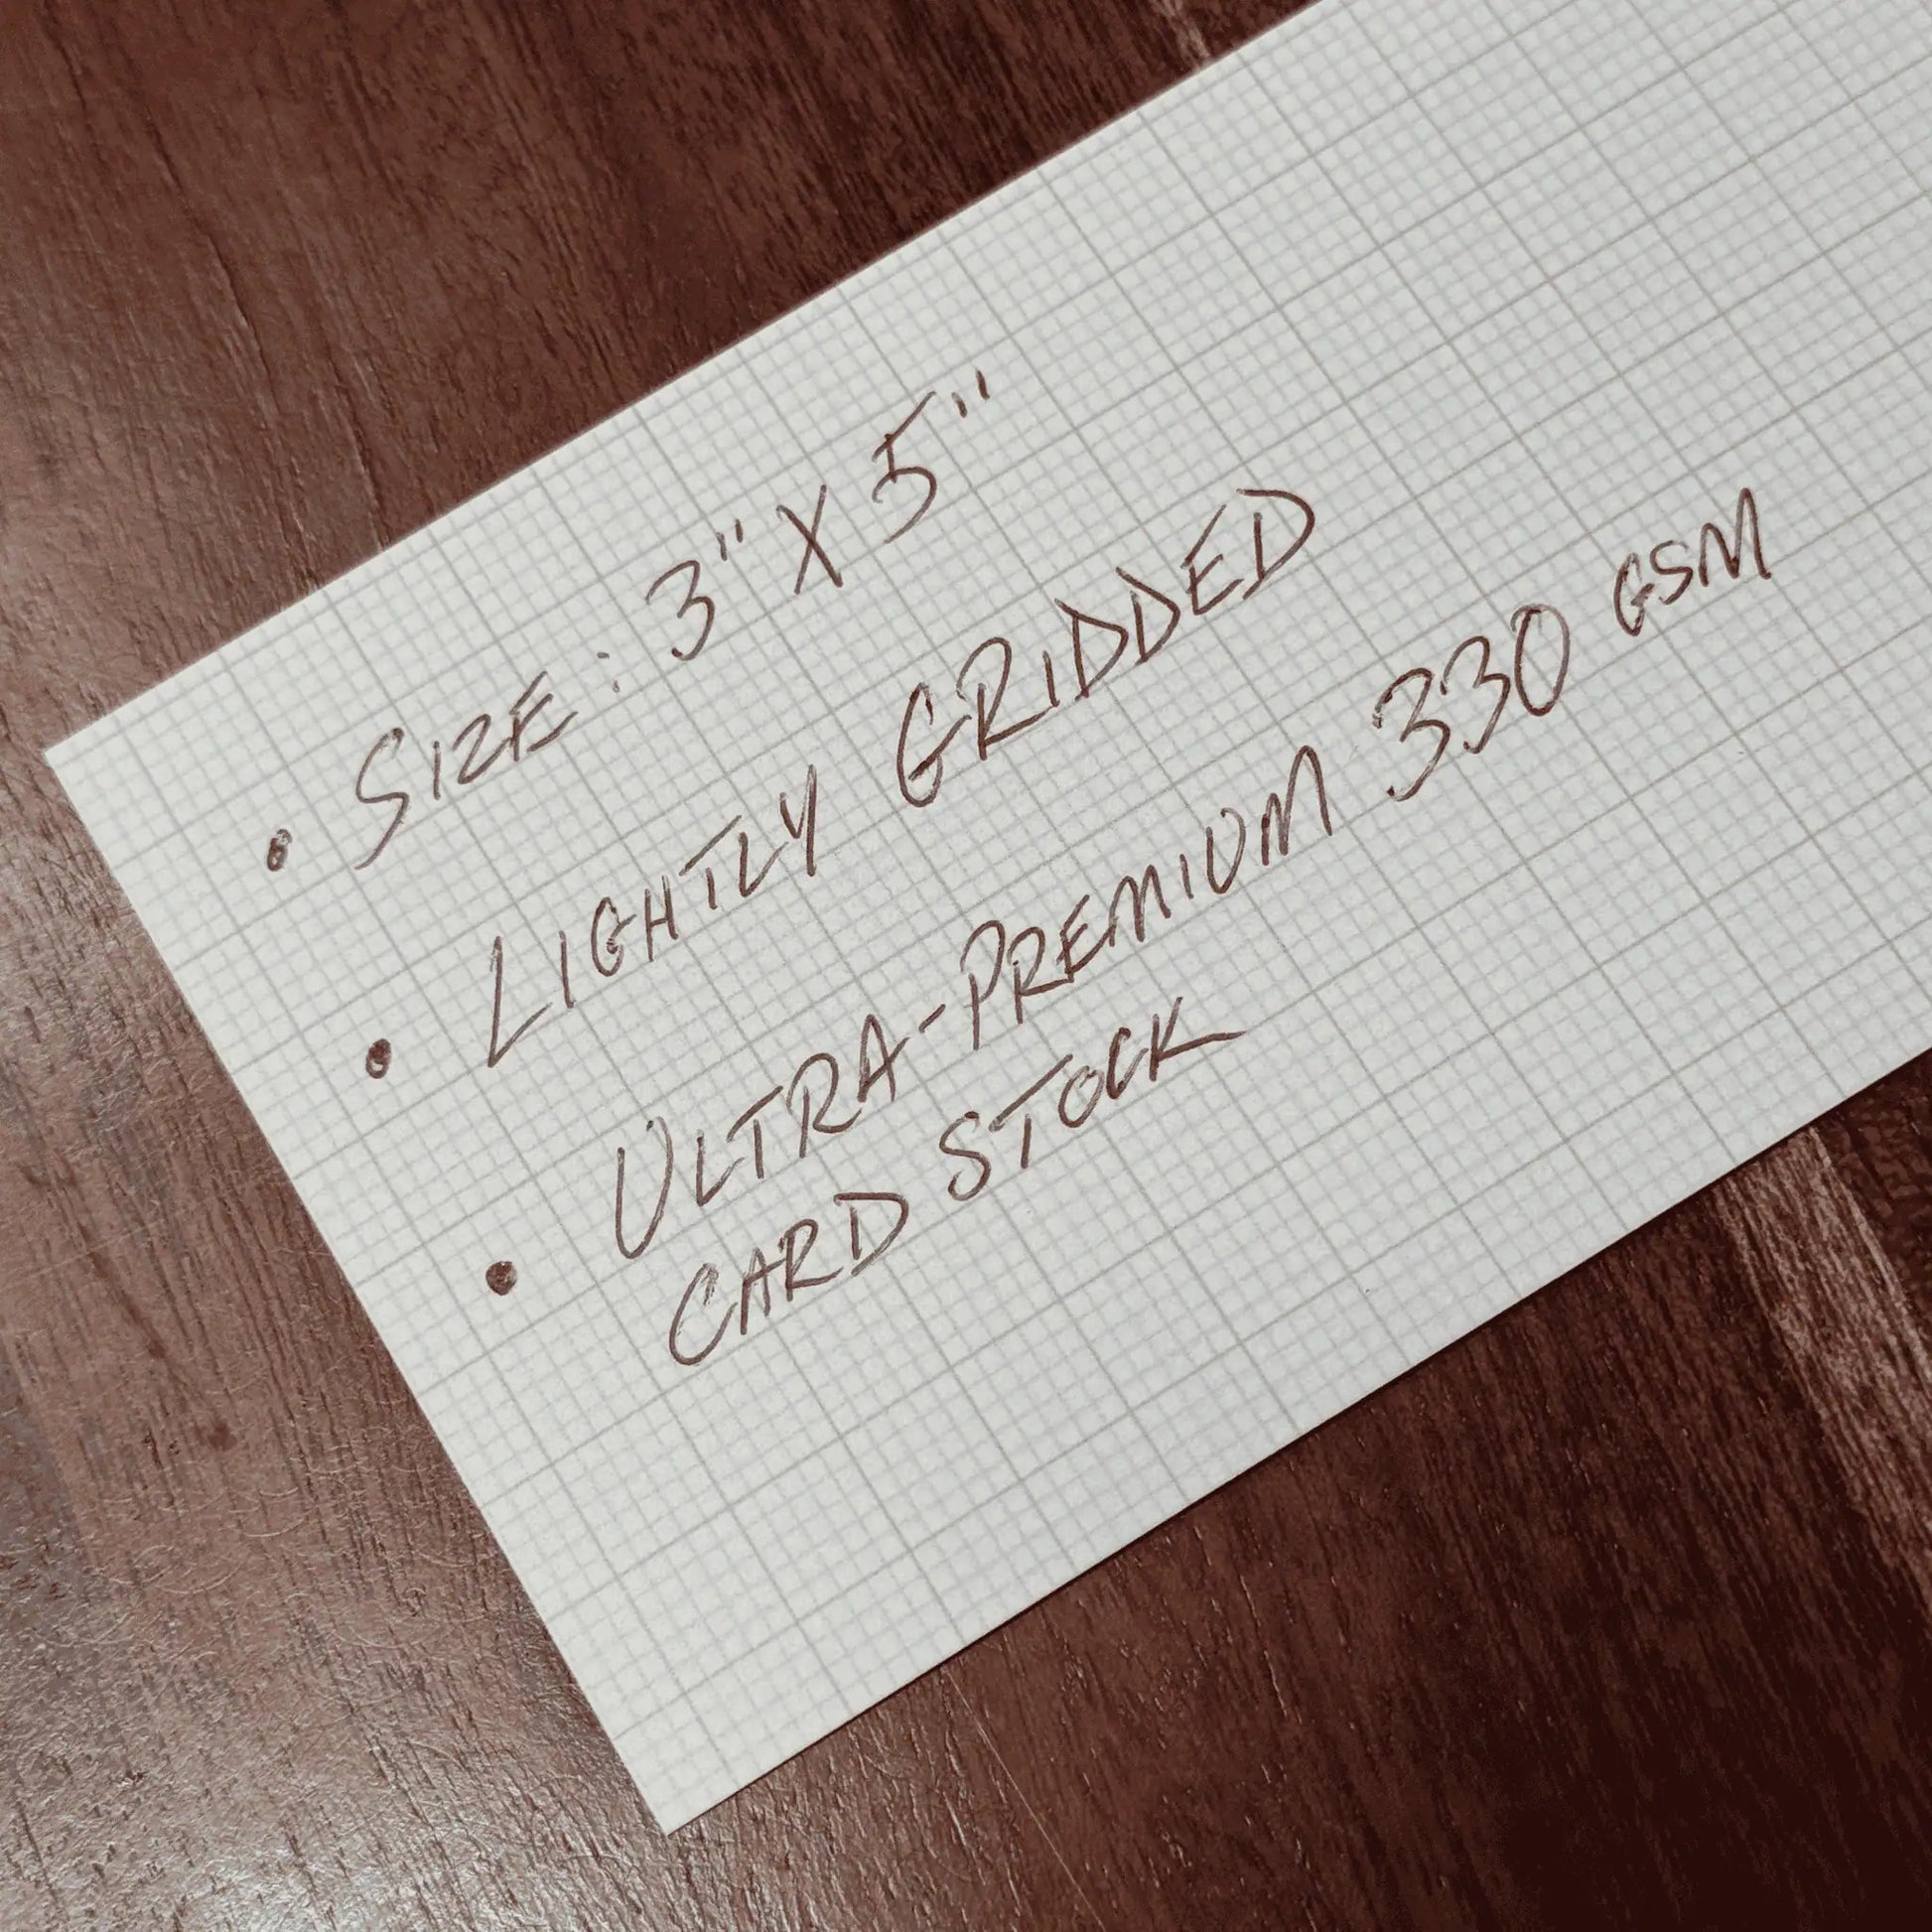 • SIZE: 3" X 5"
• LIGHTLY GRIDDED
• ULTRA-PREMIUM 330 GSM
CARD STOCK